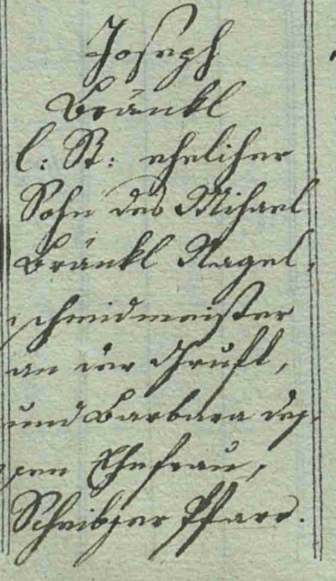 Joseph
Bränkl
l: St: eheliher
Sohn des Mihael
Bränkl Nagel-
schmidmeister
an der Gruft,
und Barbara des-
sen Ehefrau,
Scheibser Pfarr.